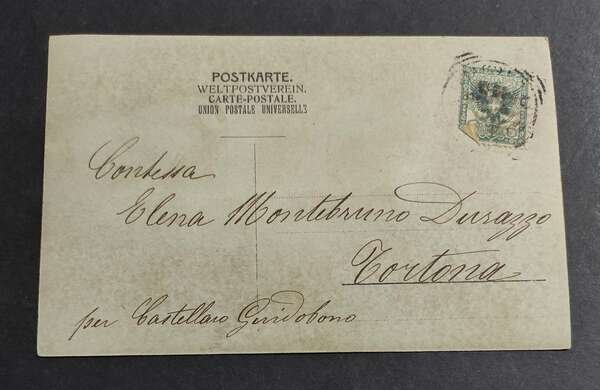 POSTKARTE.
WELTPOSTVEREIN.
CARTE-POSTALE.
UNION POSTALE UNIVERSELLE
Contessa
Elena Montebruno Durazzo
Tortona
per Castellaro Guidobono